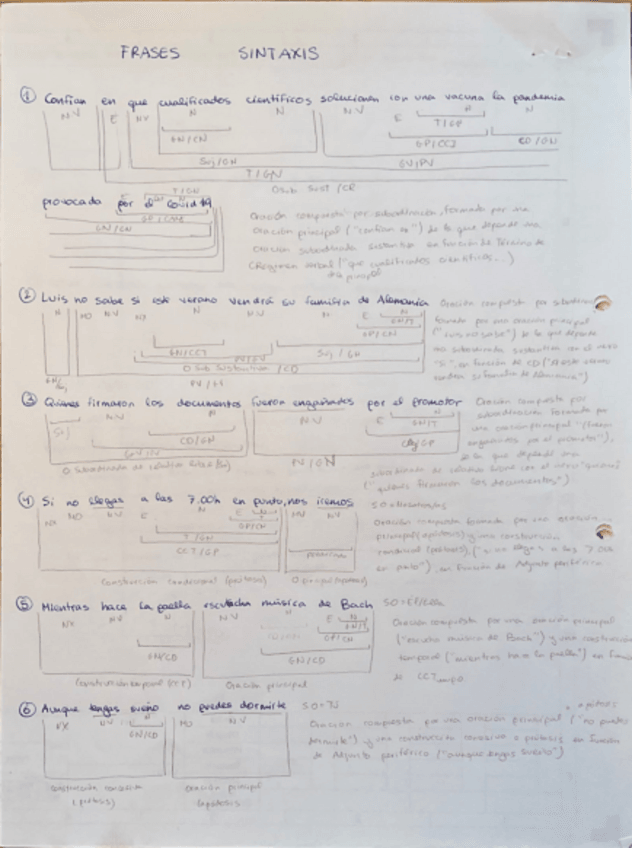 FRASES SINTAXIS
① Confían en que cualificados científicos solucionen con una vacuna la pandemia
NV E NX N N NV E N N
GN/CN T/GP
GP/CCI CD/GN
Suj/GN GV/PV
T/GN
O Sub Sust /CR
provocada por el Covid 19
T/GN
GP/CAG
GN/CN
Oración compuesta por subordinación, formada por una
oración principal ("confían en") de la que depende una
oración subordinada sustantiva en función de Término de
CRegimen verbal ("que cualificados científicos...)
② Luis no sabe si este verano vendrá su familia de Alemania
N MO NV NX N NV N E N
GN/T
GP/CN
GN/CCT Suj / GN
PV/GV
O Sub Sustantiva /CD
PV / GV
Oración compuesta por subordinación
formada por una oración principal
("Luis no sabe") de la que depende
una subordinada sustantiva con el nexo
"si", en función de CD
③ Quienes firmaron los documentos fueron engañados por el promotor
Suj NV N NV E N
GN/T
CD/GN CAg/GP
GV/PV
O Subordinada de relativo libre (Suj) PV/GV
Oración compuesta por
subordinación formada por
una oración principal ("fueron
engañados por el promotor"),
de la que depende una
subordinada de relativo libre con el nexo "quienes"
("quienes firmaron los documentos")
④ Si no llegas a las 7.00h en punto, nos iremos
NX MO NV E N E N NV
GP/CN
T / GN
CCT / GP
Construcción condicional (prótasis) O principal (apódosis)
Oración compuesta formada por una oración
principal (apódosis) y una construcción
condicional (prótasis), ("si no llegas a las 7.00h
en punto"), en función de Adjunto periférico
⑤ Mientras hace la paella escucha música de Bach
NX NV N NV E N
GN/T
GP/CN
GN/CD GN/CD
Construcción temporal (CCT) Oración principal
Oración compuesta por una oración principal
("escucha música de Bach") y una construcción
temporal ("mientras hace la paella") en función
de CCTiempo
⑥ Aunque tengas sueño no puedes dormirte
NX NV N MO NV
GN/CD
construcción concesiva
(prótasis)
Oración principal
(apódosis
Oración compuesta por una oración principal ("no puedes
dormirte") y una construcción concesiva o prótasis en función
de Adjunto periférico ("aunque tengas sueño")